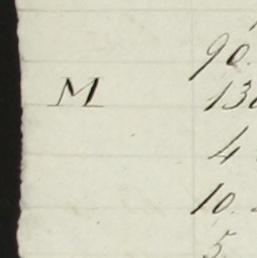 90.
M 13
4
10.
5